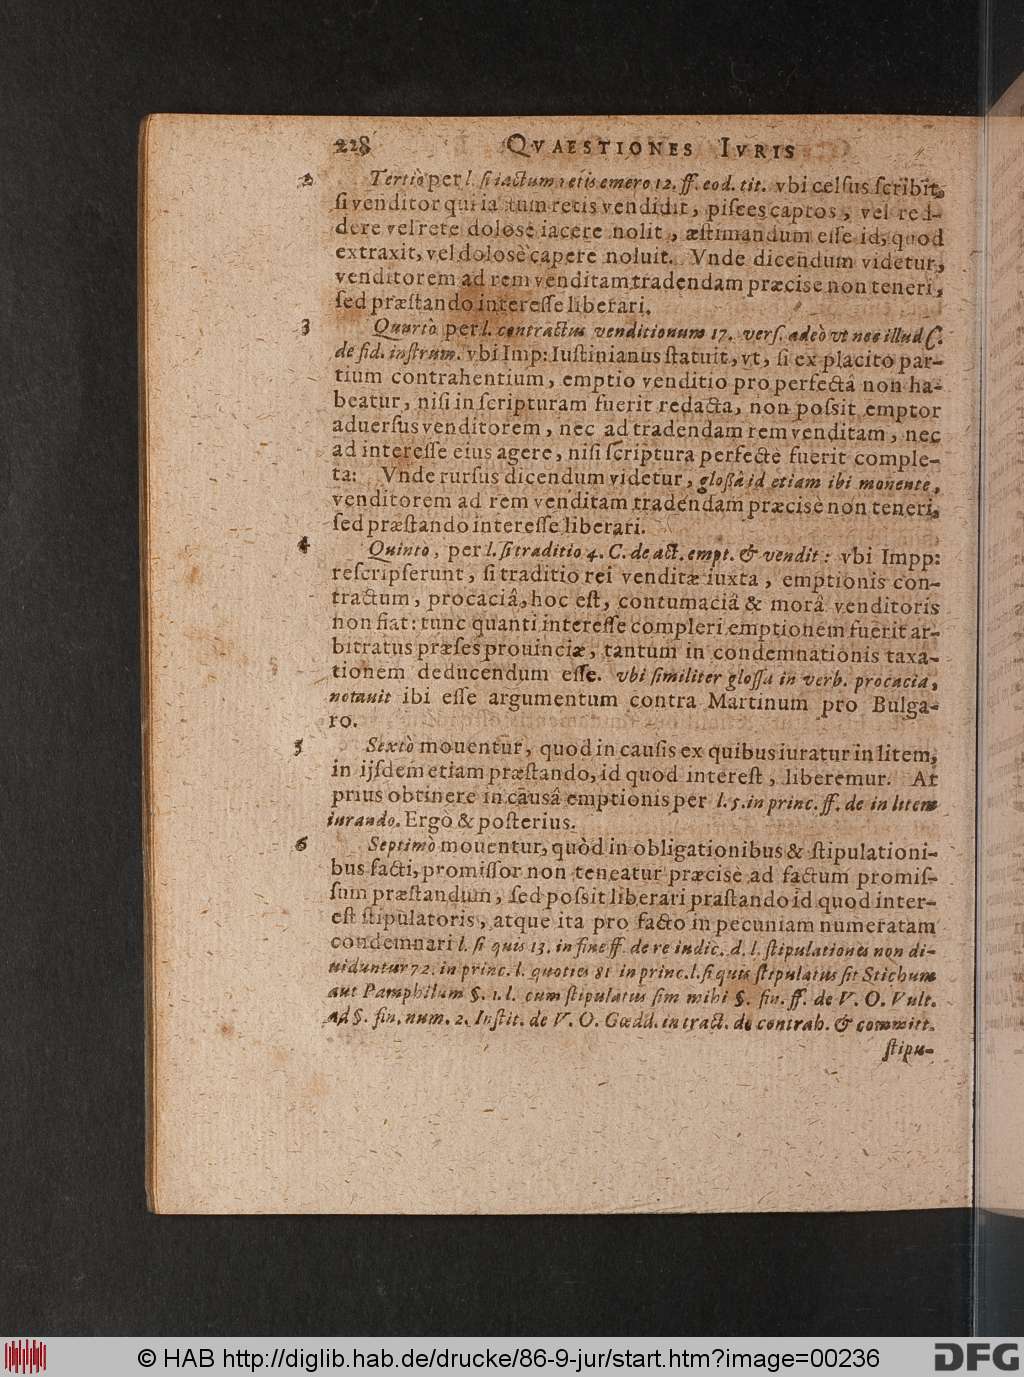 228 QVAESTIONES IVRIS
2 Tertiò per l. si iactum retis emero 12. ff. eod. tit. vbi celsus scribit,
si venditor qui ia ctum retis vendidit, pisces captos, vel red-
dere vel rete dolosè iacere nolit, æstimandum esse id, quod
extraxit, vel dolosè capere noluit. Vnde dicendum videtur,
venditorem ad rem venditam tradendam præcise non teneri,
sed præstando interesse liberari.
3 Quartò per l. contractus venditionum 17. vers. adeò vt nec illud C.
de fid. instrum. vbi Imp: Iustinianus statuit, vt, si ex placito par-
tium contrahentium, emptio venditio pro perfectâ non ha-
beatur, nisi in scripturam fuerit redacta, non possit emptor
aduersus venditorem, nec ad tradendam rem venditam, nec
ad interesse eius agere, nisi scriptura perfectè fuerit comple-
ta: Vnde rursus dicendum videtur, glossâ id etiam ibi monente,
venditorem ad rem venditam tradendam præcisè non teneri,
sed præstando interesse liberari.
4 Quinto, per l. si traditio 4. C. de act. empt. & vendit: vbi Impp:
rescripserunt, si traditio rei venditæ iuxta, emptionis con-
tractum, procaciâ, hoc est, contumaciâ & morâ venditoris
non fiat: tunc quanti interesse compleri emptionem fuerit ar-
bitratus præses prouinciæ, tantum in condemnationis taxa-
tionem deducendum esse. vbi similiter glossa in verb. procacia,
notauit ibi esse argumentum contra Martinum pro Bulga-
ro.
5 Sextò mouentur, quod in causis ex quibus iuratur in litem,
in ijsdem etiam præstando, id quod interest, liberemur. At
prius obtinere in causâ emptionis per l. 5. in princ. ff. de in litem
iurando. Ergò & posterius.
6 Septimò mouentur, quòd in obligationibus & stipulationi-
bus facti, promissor non teneatur præcisè ad factum promis-
sum præstandum, sed possit liberari præstando id quod inter-
est stipulatoris, atque ita pro facto in pecuniam numeratam
condemnari l. si quis 13. in fine ff. de re iudic. d. l. stipulationes non di-
uiduntur 72. in princ. l. quoties 81 in princ. l. si quis stipulatus sit Stichum
aut Pamphilum §. 1. l. cum stipulatus sim mihi §. fin. ff. de V. O. Vult.
Ad §. fin. num. 2. Instit. de V. O. Gœdd. in tract. de contrah. & committ.
stipu-
© HAB http://diglib.hab.de/drucke/86-9-jur/start.htm?image=00236
DFG